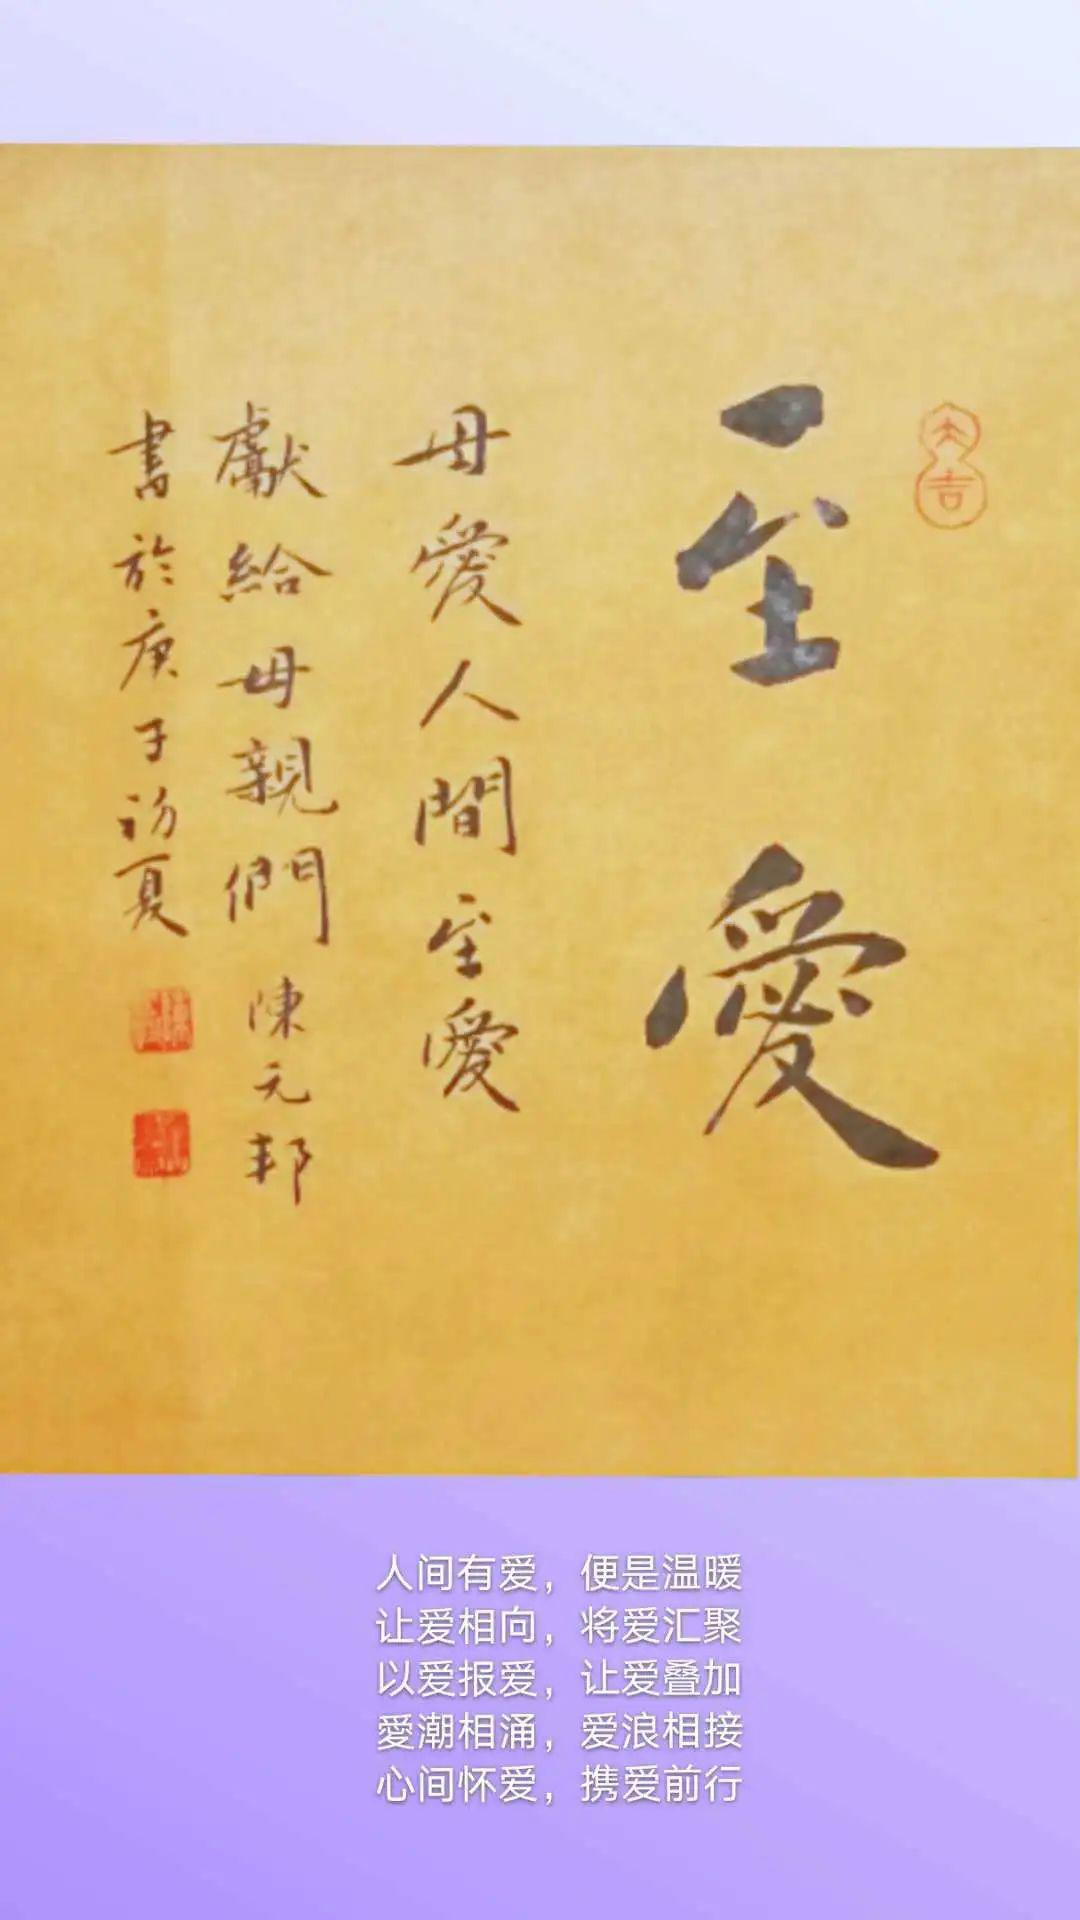 大吉
至愛
母愛人間至愛
獻給母親們 陳元邦
書於庚子初夏
人间有爱，便是温暖
让爱相向，将爱汇聚
以爱报爱，让爱叠加
愛潮相涌，爱浪相接
心间怀爱，携爱前行